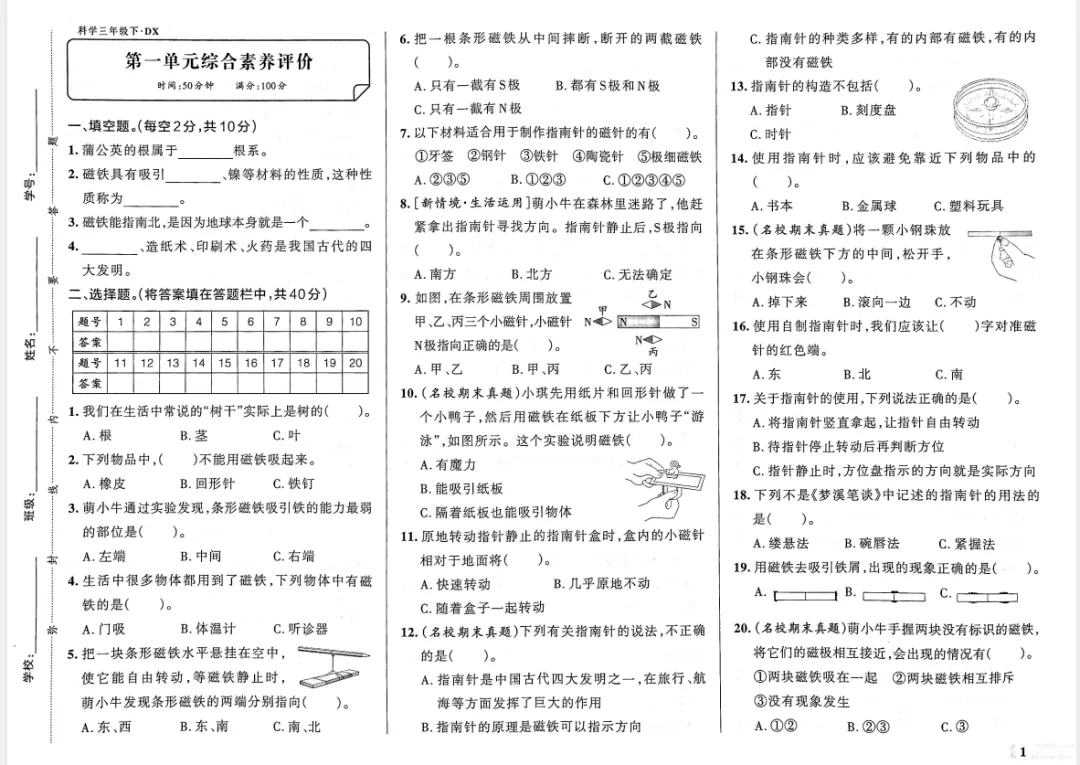 科学三年级下·DX
第一单元综合素养评价
时间:50分钟 满分:100分
学号:
姓名:
班级:
学校:
题
答
要
不
内
线
封
弥
一、填空题。(每空2分,共10分)
1. 蒲公英的根属于________根系。
2. 磁铁具有吸引________、镍等材料的性质,这种性
质称为________。
3. 磁铁能指南北,是因为地球本身就是一个________。
4. ________、造纸术、印刷术、火药是我国古代的四
大发明。
二、选择题。(将答案填在答题栏中,共40分)
题号 1 2 3 4 5 6 7 8 9 10
答案
题号 11 12 13 14 15 16 17 18 19 20
答案
1. 我们在生活中常说的“树干”实际上是树的( )。
A. 根 B. 茎 C. 叶
2. 下列物品中,( )不能用磁铁吸起来。
A. 橡皮 B. 回形针 C. 铁钉
3. 萌小牛通过实验发现,条形磁铁吸引铁的能力最弱
的部位是( )。
A. 左端 B. 中间 C. 右端
4. 生活中很多物体都用到了磁铁,下列物体中有磁
铁的是( )。
A. 门吸 B. 体温计 C. 听诊器
5. 把一块条形磁铁水平悬挂在空中,
使它能自由转动,等磁铁静止时,
萌小牛发现条形磁铁的两端分别指向( )。
A. 东、西 B. 东、南 C. 南、北
6. 把一根条形磁铁从中间摔断,断开的两截磁铁
( )。
A. 只有一截有S极 B. 都有S极和N极
C. 只有一截有N极
7. 以下材料适合用于制作指南针的磁针的有( )。
①牙签 ②钢针 ③铁针 ④陶瓷针 ⑤极细磁铁
A. ②③⑤ B. ①②③ C. ①②③④⑤
8. [新情境·生活运用]萌小牛在森林里迷路了,他赶
紧拿出指南针寻找方向。指南针静止后,S极指向
( )。
A. 南方 B. 北方 C. 无法确定
9. 如图,在条形磁铁周围放置
甲、乙、丙三个小磁针,小磁针
N极指向正确的是( )。
乙
N
甲
N N S
N
丙
A. 甲、乙 B. 甲、丙 C. 乙、丙
10. (名校期末真题)小琪先用纸片和回形针做了一
个小鸭子,然后用磁铁在纸板下方让小鸭子“游
泳”,如图所示。这个实验说明磁铁( )。
A. 有魔力
B. 能吸引纸板
C. 隔着纸板也能吸引物体
11. 原地转动指针静止的指南针盒时,盒内的小磁针
相对于地面将( )。
A. 快速转动 B. 几乎原地不动
C. 随着盒子一起转动
12. (名校期末真题)下列有关指南针的说法,不正确
的是( )。
A. 指南针是中国古代四大发明之一,在旅行、航
海等方面发挥了巨大的作用
B. 指南针的原理是磁铁可以指示方向
C. 指南针的种类多样,有的内部有磁铁,有的内
部没有磁铁
13. 指南针的构造不包括( )。
A. 指针 B. 刻度盘
C. 时针
14. 使用指南针时,应该避免靠近下列物品中的
( )。
A. 书本 B. 金属球 C. 塑料玩具
15. (名校期末真题)将一颗小钢珠放
在条形磁铁下方的中间,松开手,
小钢珠会( )。
A. 掉下来 B. 滚向一边 C. 不动
16. 使用自制指南针时,我们应该让( )字对准磁
针的红色端。
A. 东 B. 北 C. 南
17. 关于指南针的使用,下列说法正确的是( )。
A. 将指南针竖直拿起,让指针自由转动
B. 待指针停止转动后再判断方位
C. 指针静止时,方位盘指示的方向就是实际方向
18. 下列不是《梦溪笔谈》中记述的指南针的用法的
是( )。
A. 缕悬法 B. 碗唇法 C. 紧握法
19. 用磁铁去吸引铁屑,出现的现象正确的是( )。
A. B. C.
20. (名校期末真题)萌小牛手握两块没有标识的磁铁,
将它们的磁极相互接近,会出现的情况有( )。
①两块磁铁吸在一起 ②两块磁铁相互排斥
③没有现象发生
A. ①② B. ②③ C. ③
1